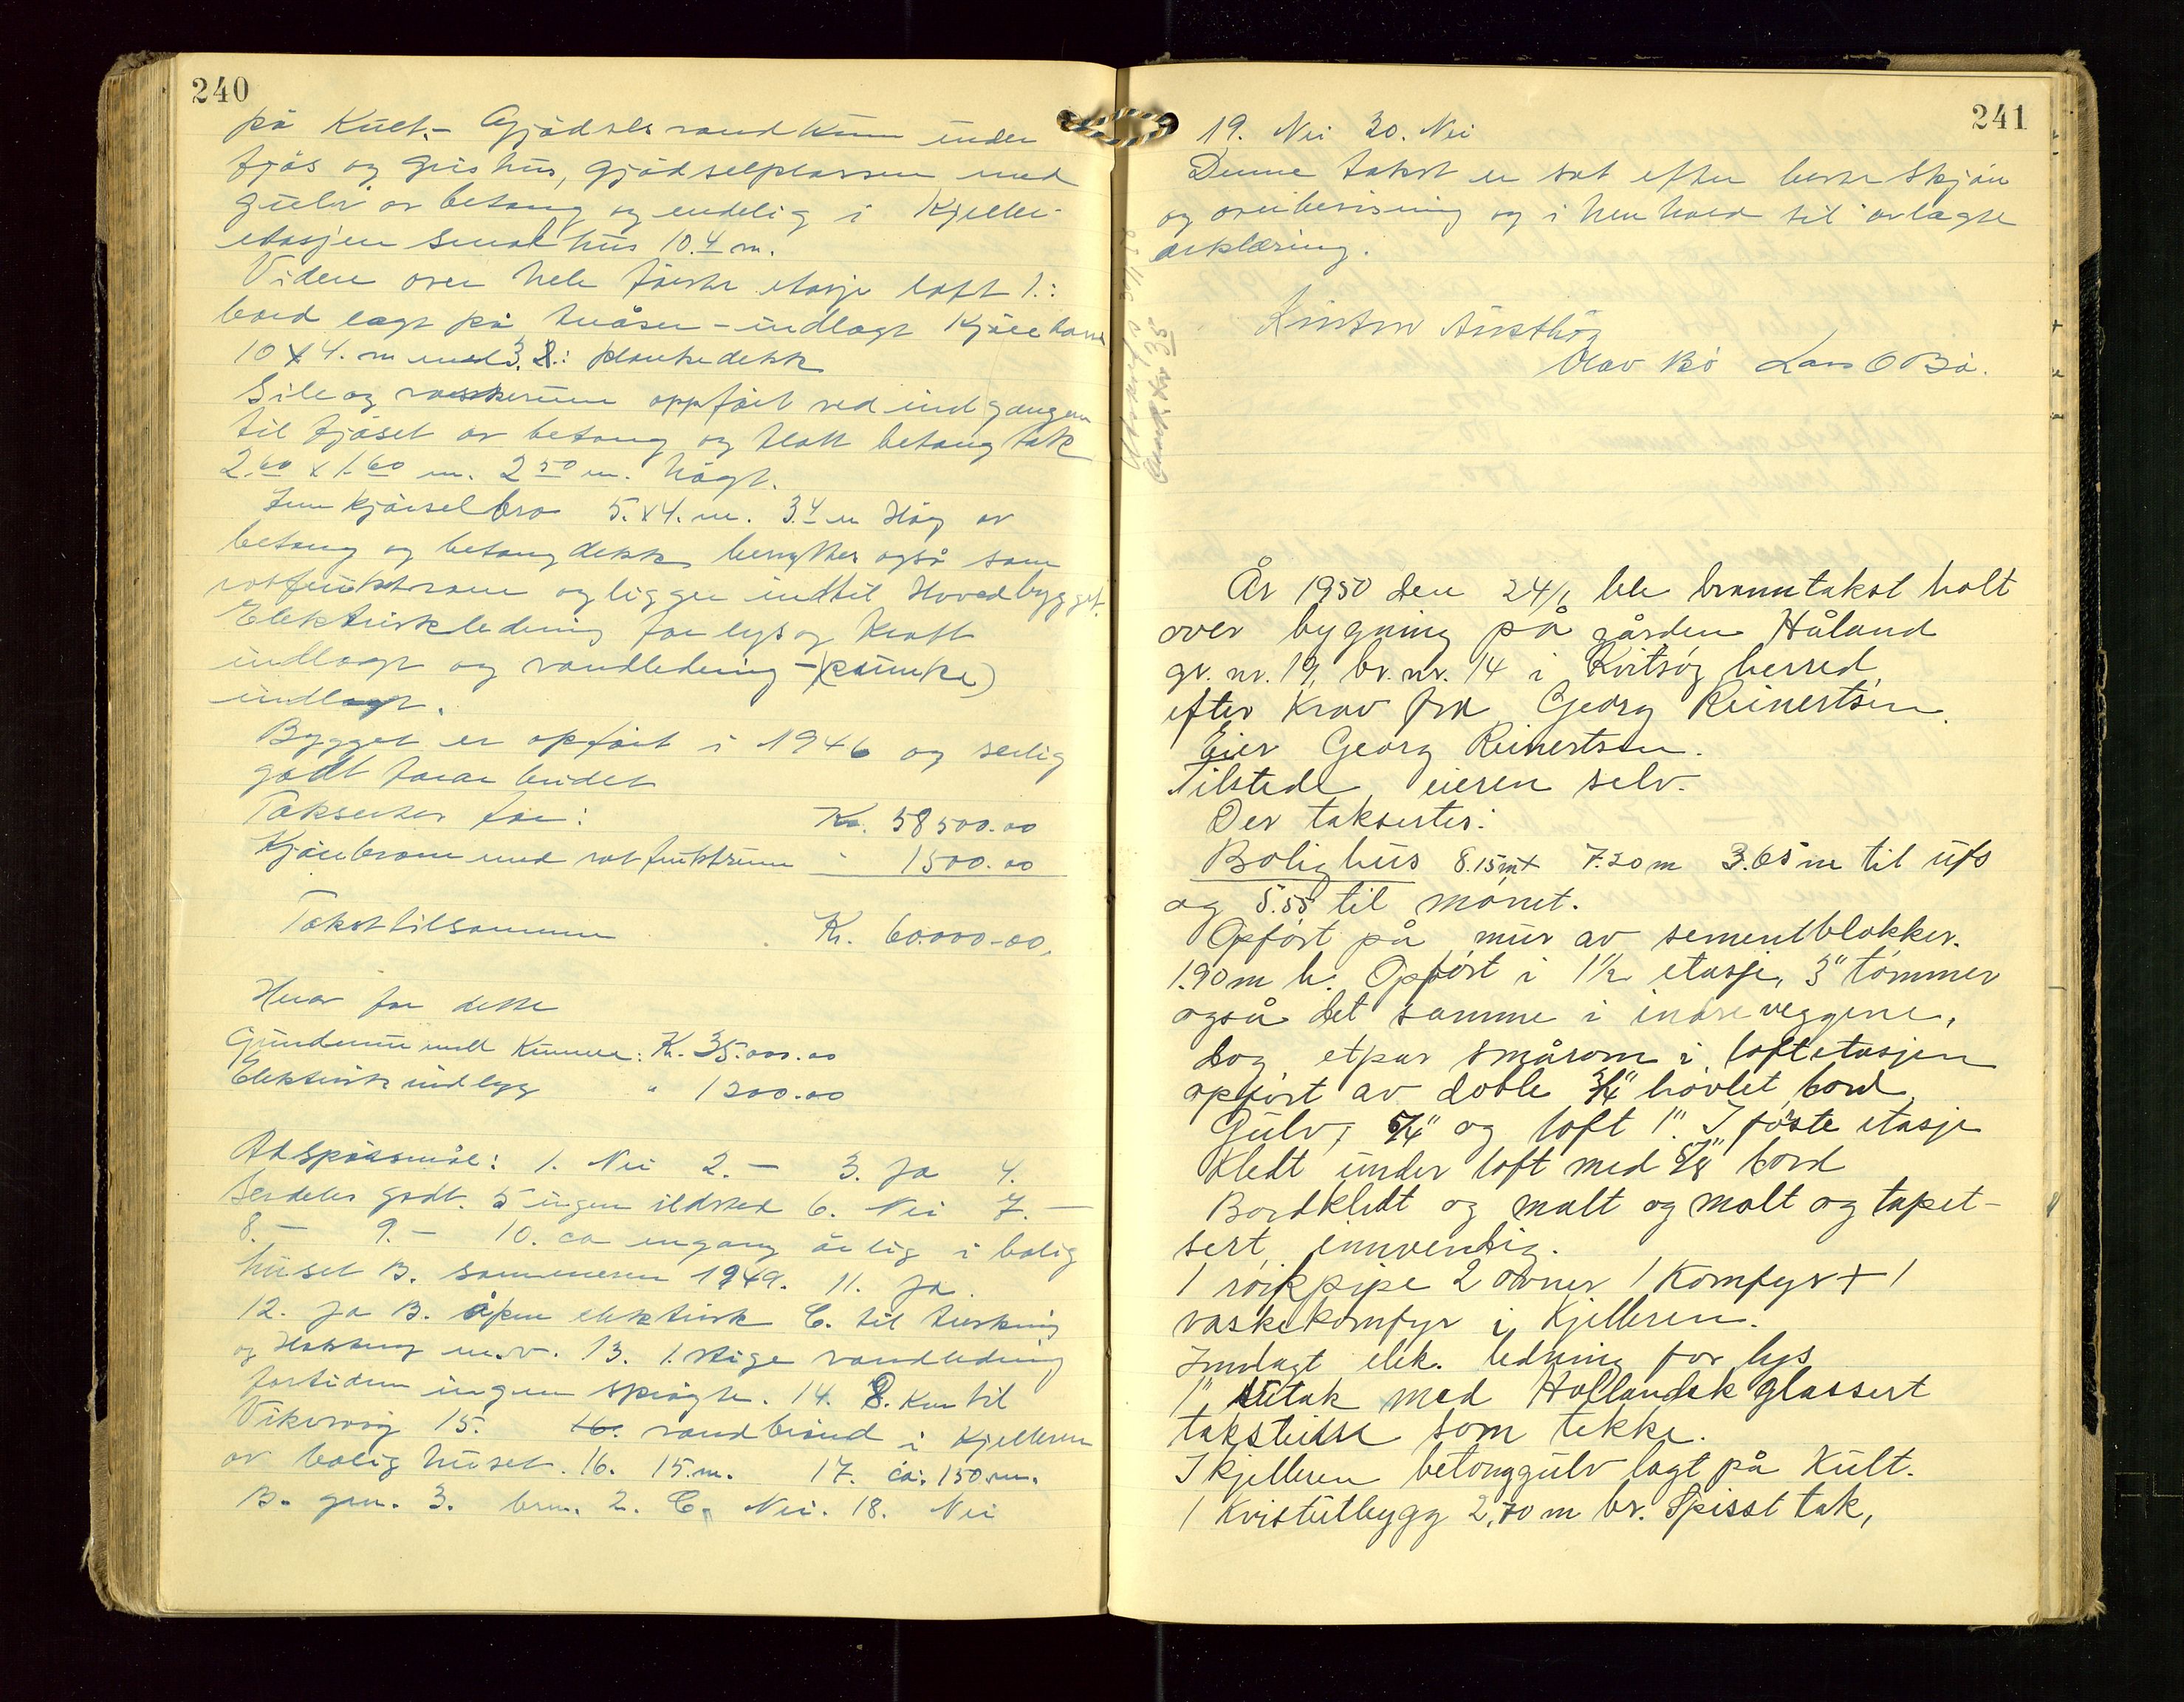 240
på Kult.- Gjödsels vandkum under
fjös og grishus, gjödselplassen med
gulv av betong og endelig i Kjeller-
etasjen smalhus 10.4 m.
Videre over hele förste etasje loft 1.:
bord lagt på tvåser - indlagt Kjörebane
10 x 4. m med 3. 8.: plankedekk
Sile og vaskerum oppfört ved indgangen
til fjöset av betong og flatt betong tak
2.60 x 1.60 m. 2.50 m. högt.
Inn kjörselbro 5. x 4. m. 3.4 m Hög av
betong og betong dekk benyttes også som
rotfruktrom og ligger indtil Hovedbygget.
Elektriskledning for lys og Kraft
indlagt og vandledning - (pumpe)
indlagt.
Bygget er opfört i 1946 og serlig
godt forarbeidet
Takseres for: Kr. 58500.00
Kjörebroen med rotfruktrum " 1500.00
Takst tilsammen Kr. 60.000-00,
Herav for dette
Grundmur med Kummer: Kr. 35.000.00
Elektrisk indlegg " 1200.00
Ad spörsmål: 1. Nei 2. - 3. Ja 4.
Serdeles godt. 5 ingen ildsted 6. Nei 7. -
8. - 9. - 10. ca engang årlig i bolig
huset B. sommeren 1949. 11. Ja.
12. Ja B. åpen elektrisk C. til tersking
og Hakking m.v. 13. 1. stige vandledning
fortiden ingen spröyte. 14. 8. Km til
Vikevåg 15. 16. vandbrönd i Kjelleren
av bolig huset. 16. 15. m. 17. ca. 150. m.
B. grn. 3. brn. 2. C. Nei. 18. Nei
241
19. Nei 20. Nei
Denne takst er sat efter beste skjön
og overbevisning og i henhold til avlagte
erklæring.
Olav Bö Lars O Bö.
År 1950 den 24/1 ble branntakst holt
over bygning på gården Håland
gr. nr. 19, br. nr. 14 i Kvitsøy herred,
efter Krav fra Georg Reinertsen.
Eier Georg Reinertsen.
Tilstede eieren selv.
Der taksertes:
Bolighus 8.15 m x 7.20 m 3.65 m til ufs
og 5.55 til mønet.
Opført på mur av sementblokker.
1.90 m h. Opført i 1½ etasje, 3" tømmer
også det samme i indre veggene,
dog etpar smårom i loftetasjen
opført av doble 3/4" høvlet bord
Gulv, 5/4" og loft 1". I føste etasje
Kledt under loft med 5/8" bord
Bordkledt og malt og malt og tapet-
sert innvendig.
1 røikpipe 2 ovner 1 Komfyr + 1
vaskekomfyr i Kjelleren.
Innlagt elek. ledning for lys
1" sutak med Hollandsk glassert
takstein som tekke.
I kjelleren betonggulv lagt på Kult.
1 Kvistutbygg 2,70 m br. Spisst tak,